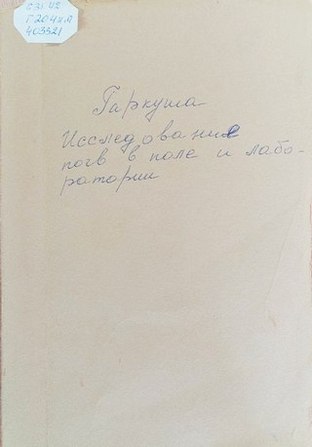 631.42
Г204и А
403321
Гаркуша
Исследование
почв в поле и лабо-
ратории